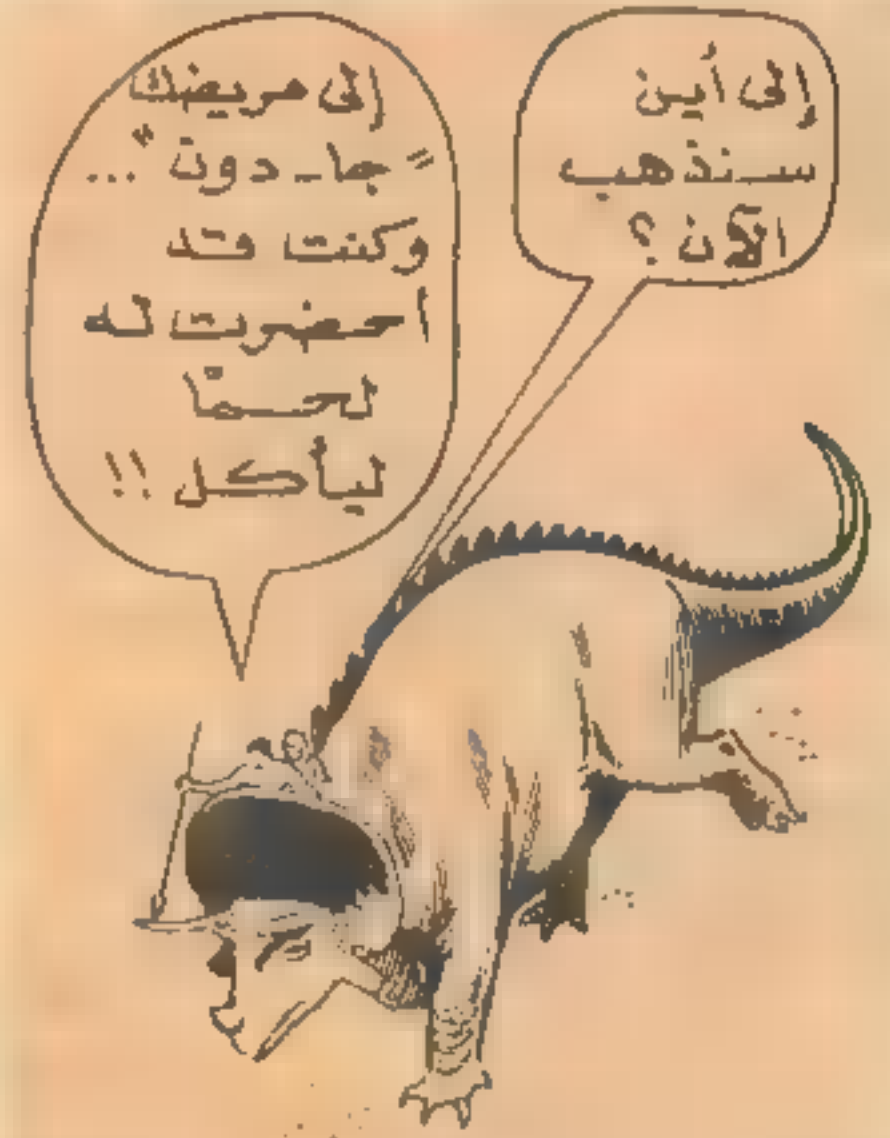 إلى أين
سنذهب
الآن؟
إلى مريضك
"جا-دون"...
وكنت قد
أحضرت له
لحمًا
ليأكل!!